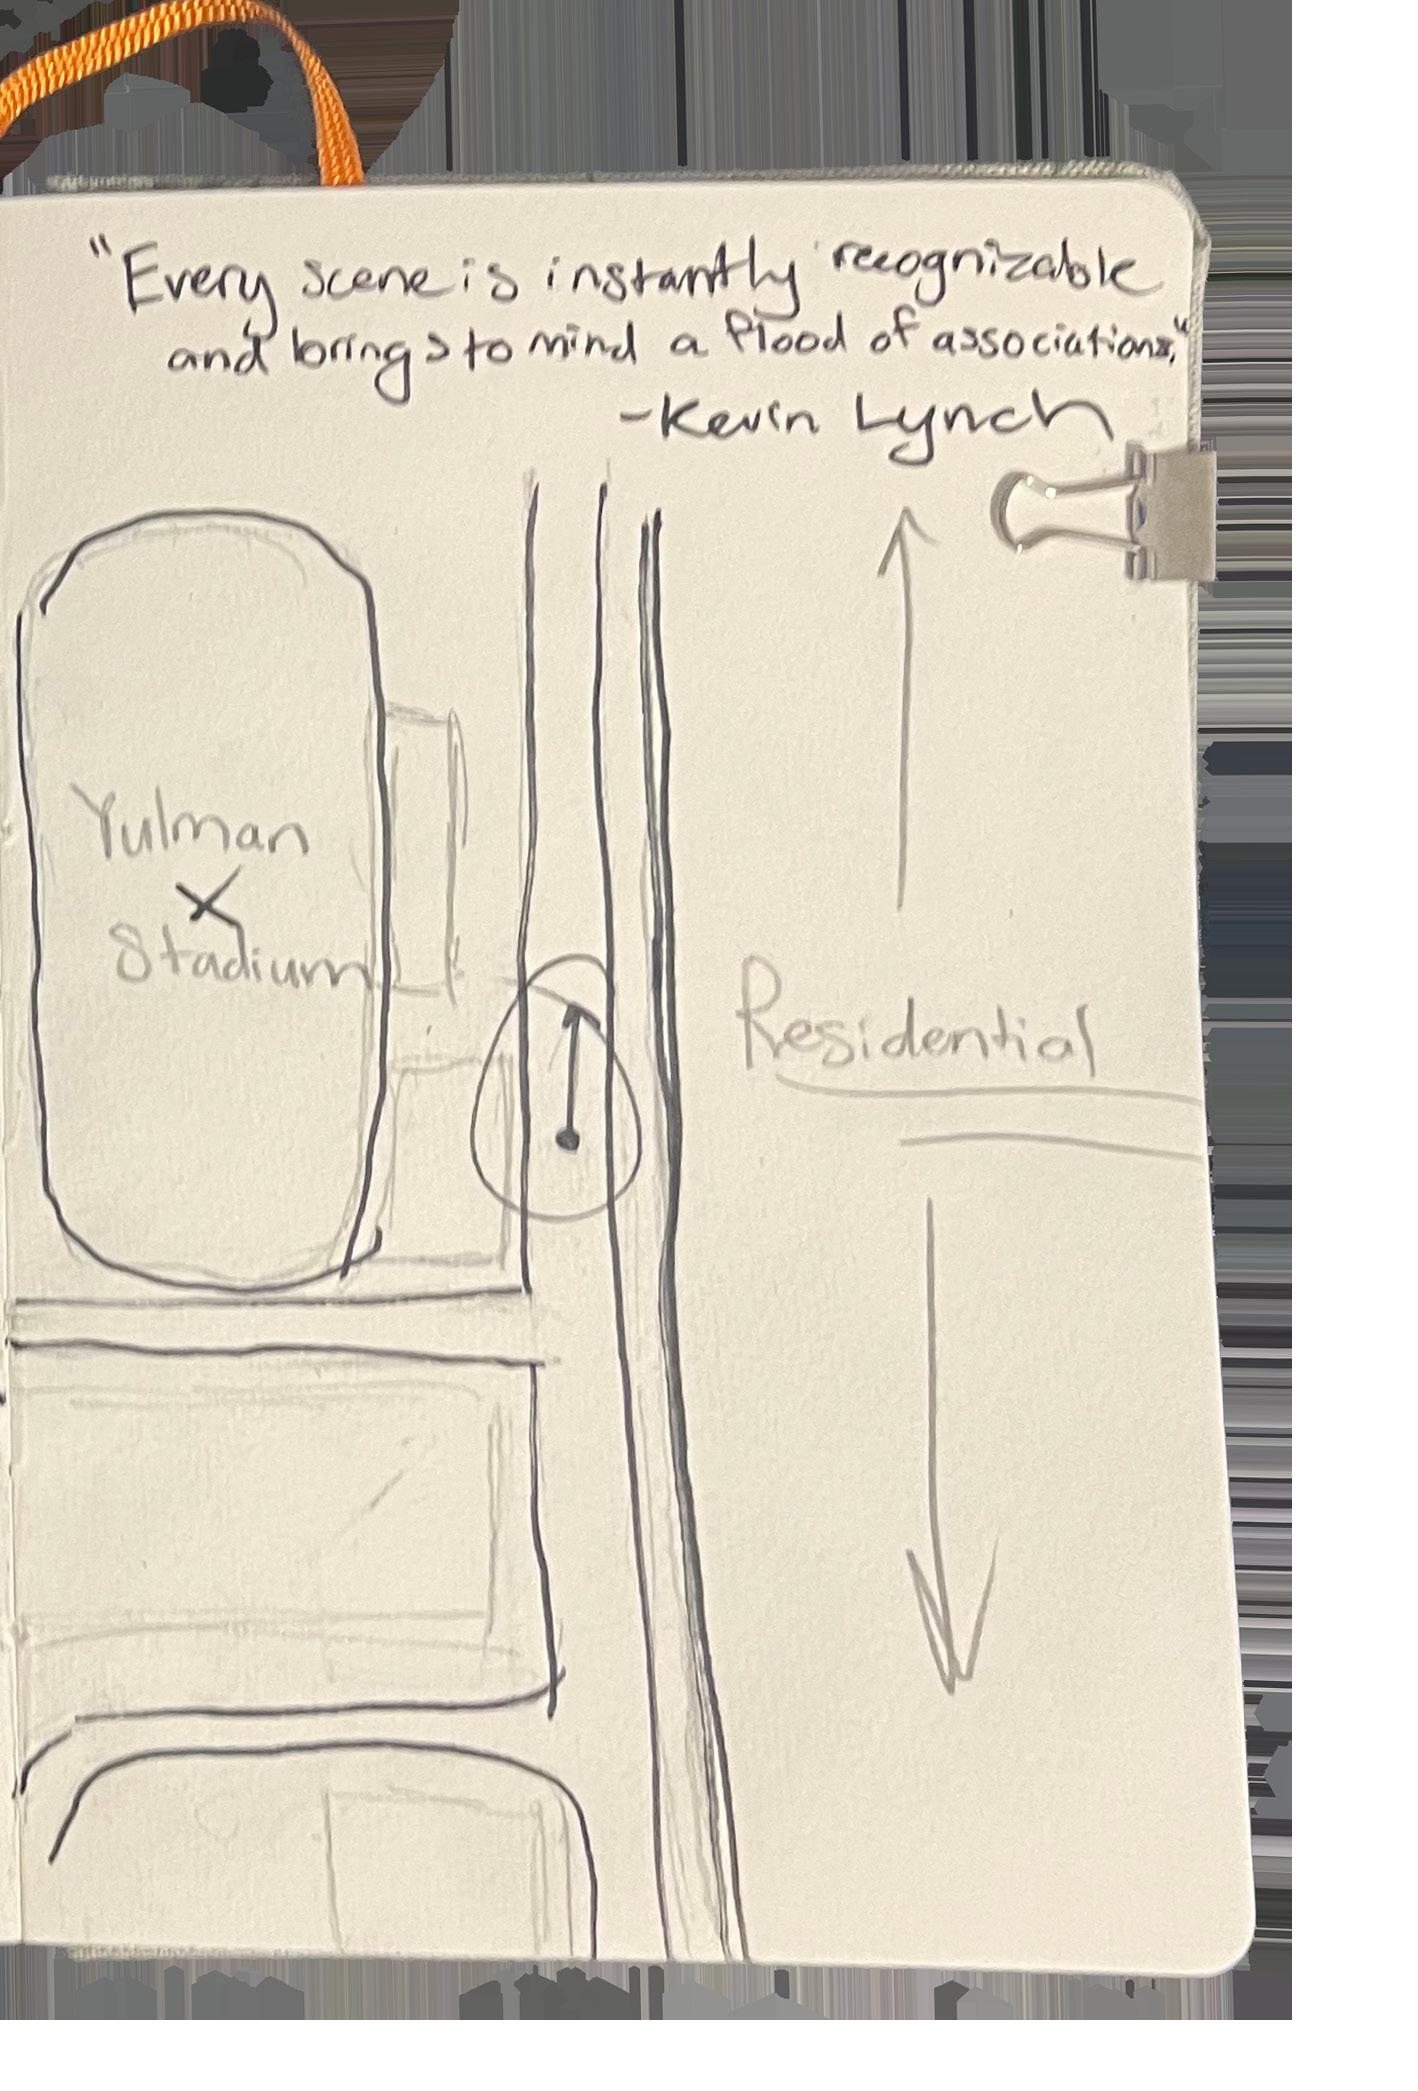 "Every scene is instantly recognizable
and brings to mind a flood of associations,"
-Kevin Lynch
Yulman
X
Stadium
Residential